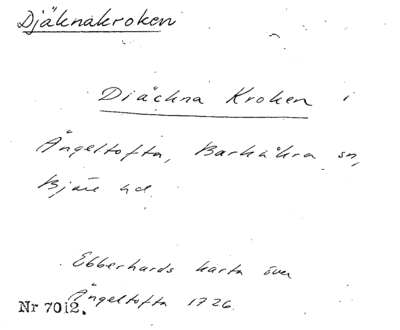 Djäknakroken
Diäckna Kroken i
Ängeltofta, Barkåkra sn,
Bjäre hd.
Ebberhards karta över
Ängeltofta 1726.
Nr 7012.